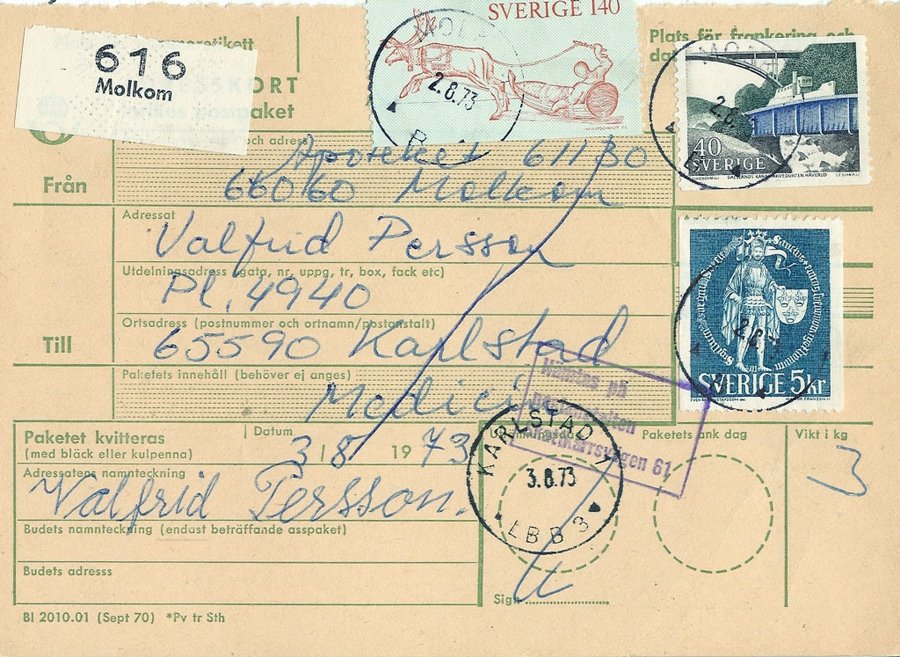 616
Molkom
SVERIGE 140
Plats för frankering och
MOLKOM
2.8.73
40
SVERIGE
DALSLANDS KANAL. AKVEDUKTEN HÅVERUD
Från
och adress
Apoteket 61130
66060 Molkom
Adressat
Valfrid Persson
Utdelningsadress (gata, nr, uppg, tr, box, fack etc)
Pl. 4940
Ortsadress (postnummer och ortnamn/postanstalt)
Till
65590 Karlstad
Paketets innehåll (behöver ej anges)
Medicin
SVERIGE 5kr
Hämtas på
postanstalten
61
Paketet kvitteras
(med bläck eller kulpenna)
Datum
3/8 1973
Adressatens namnteckning
Valfrid Persson.
Budets namnteckning (endast beträffande asspaket)
Budets adresss
KARLSTAD 1
3.8.73
LBB 3
Paketets ank dag
Vikt i kg
3
Sign
Bl 2010.01 (Sept 70) *Pv tr Sth